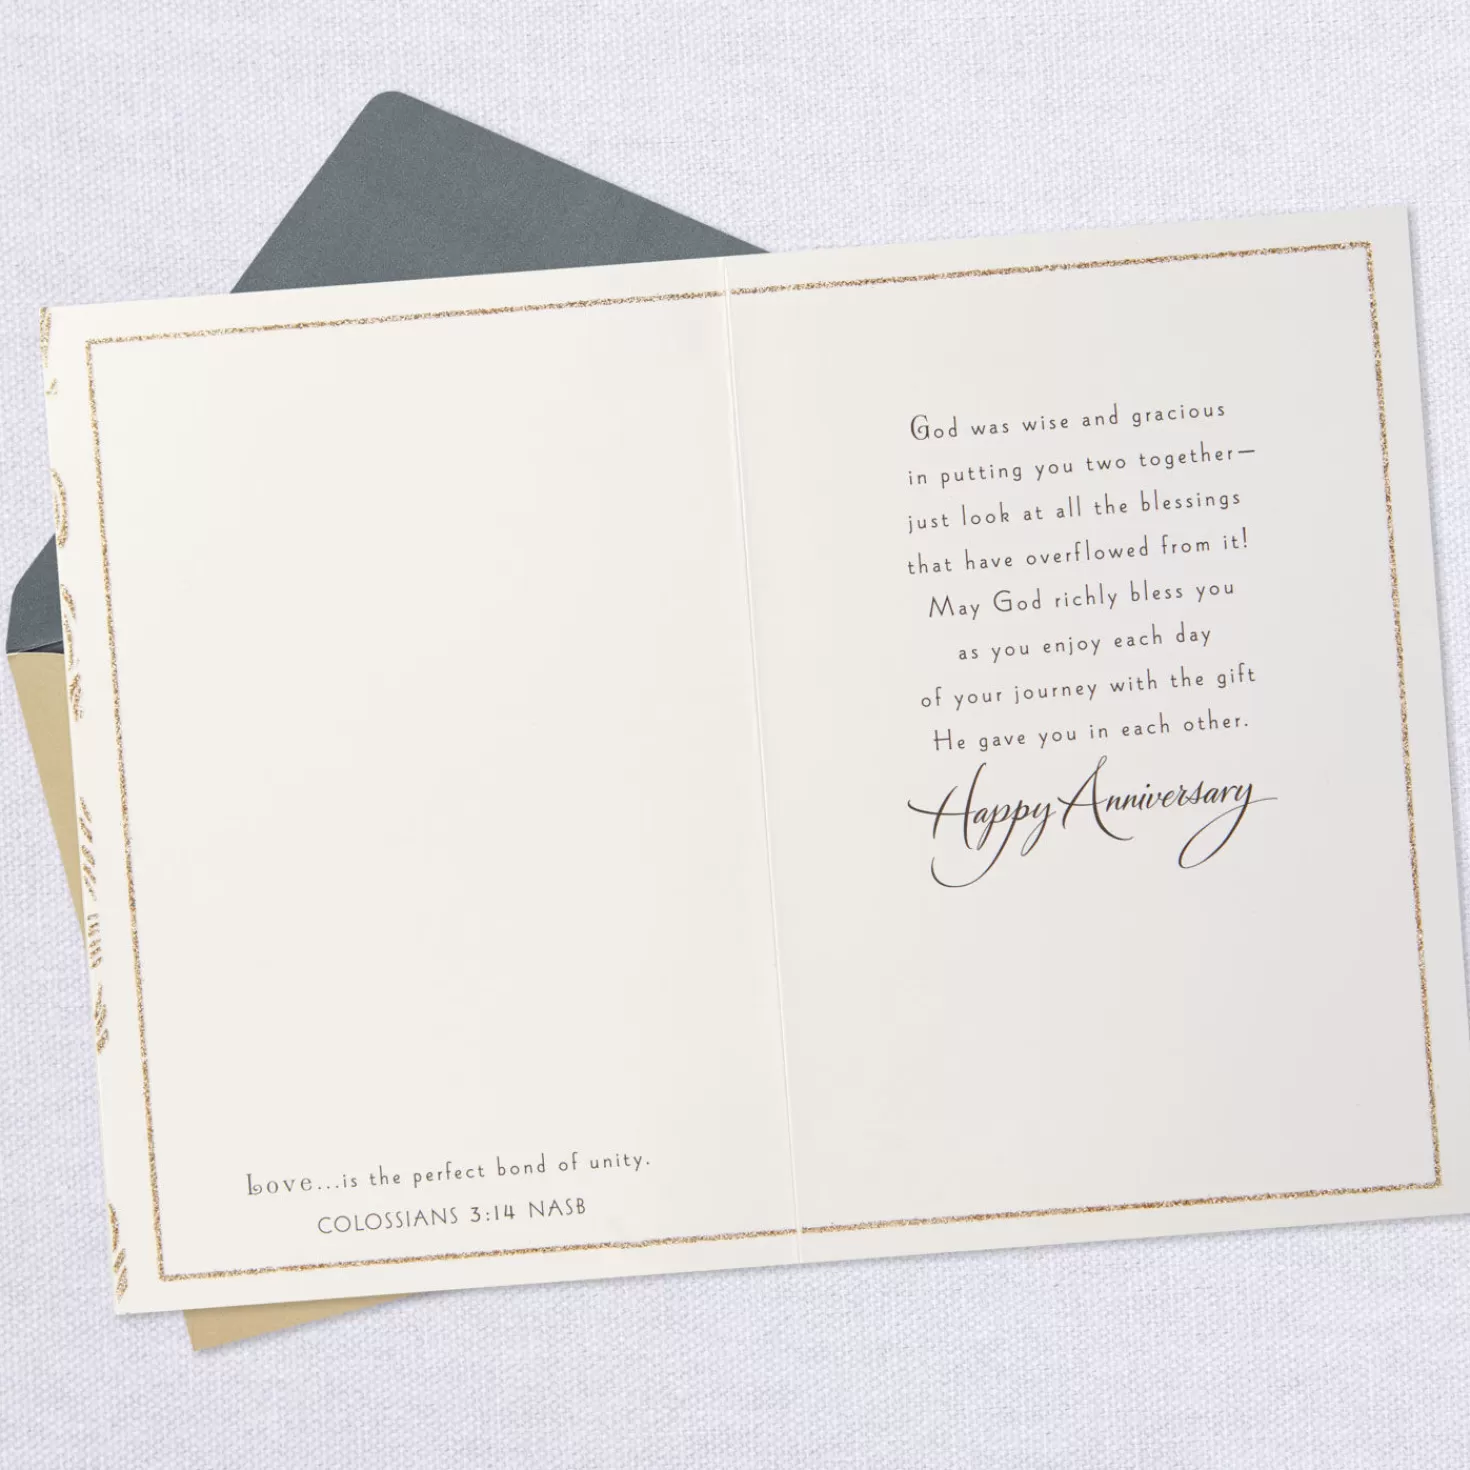 Love...is the perfect bond of unity.
COLOSSIANS 3:14 NASB
God was wise and gracious
in putting you two together—
just look at all the blessings
that have overflowed from it!
May God richly bless you
as you enjoy each day
of your journey with the gift
He gave you in each other.
Happy Anniversary